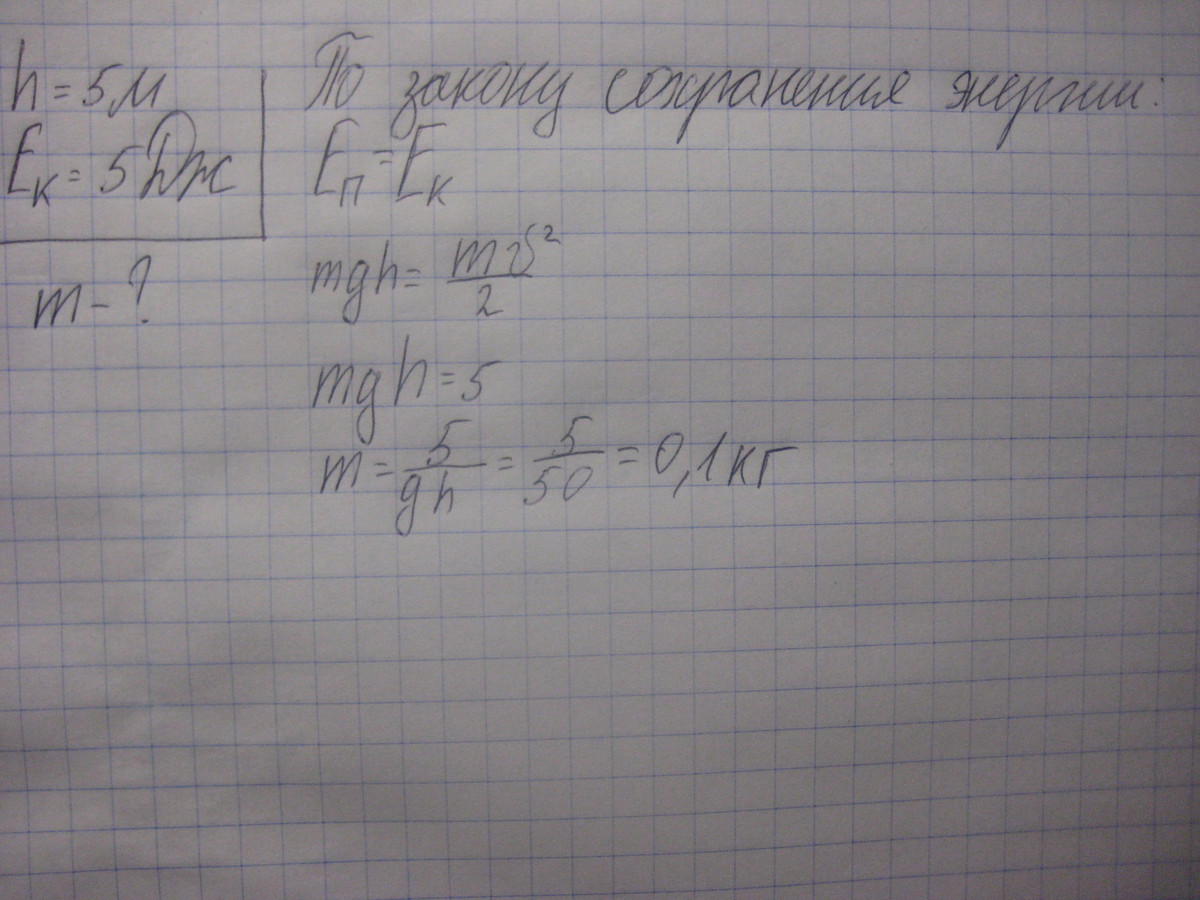 h = 5м
Eк = 5Дж
m - ?
По закону сохранения энергии:
Eп = Eк
mgh = mv²/2
mgh = 5
m = 5/gh = 5/50 = 0,1кг